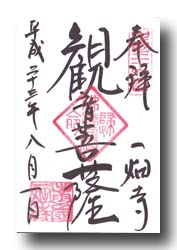 奉拝　一畑寺
観音菩薩
平成二十三年八月一日